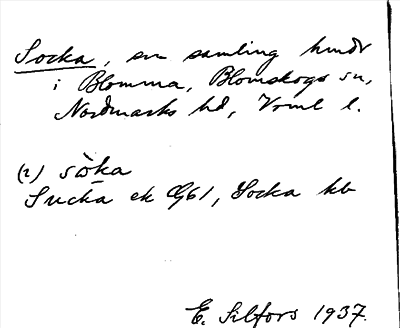 Socka, en samling hmdr
i Blomma, Blomskogs sn,
Nordmarks hd, Vrml l.
(2) sòka
Sucka ek G61, Socka kb
E. Silfors 1937.